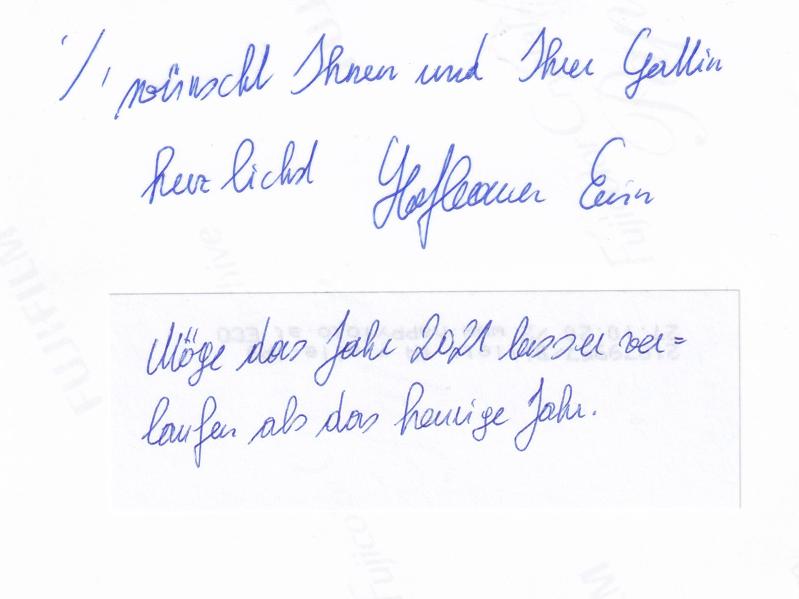 ./. wünscht Ihnen und Ihrer Gattin
herzlichst Erwin
Möge das Jahr 2021 besser ver=
laufen als das heurige Jahr.
FUJIFILM